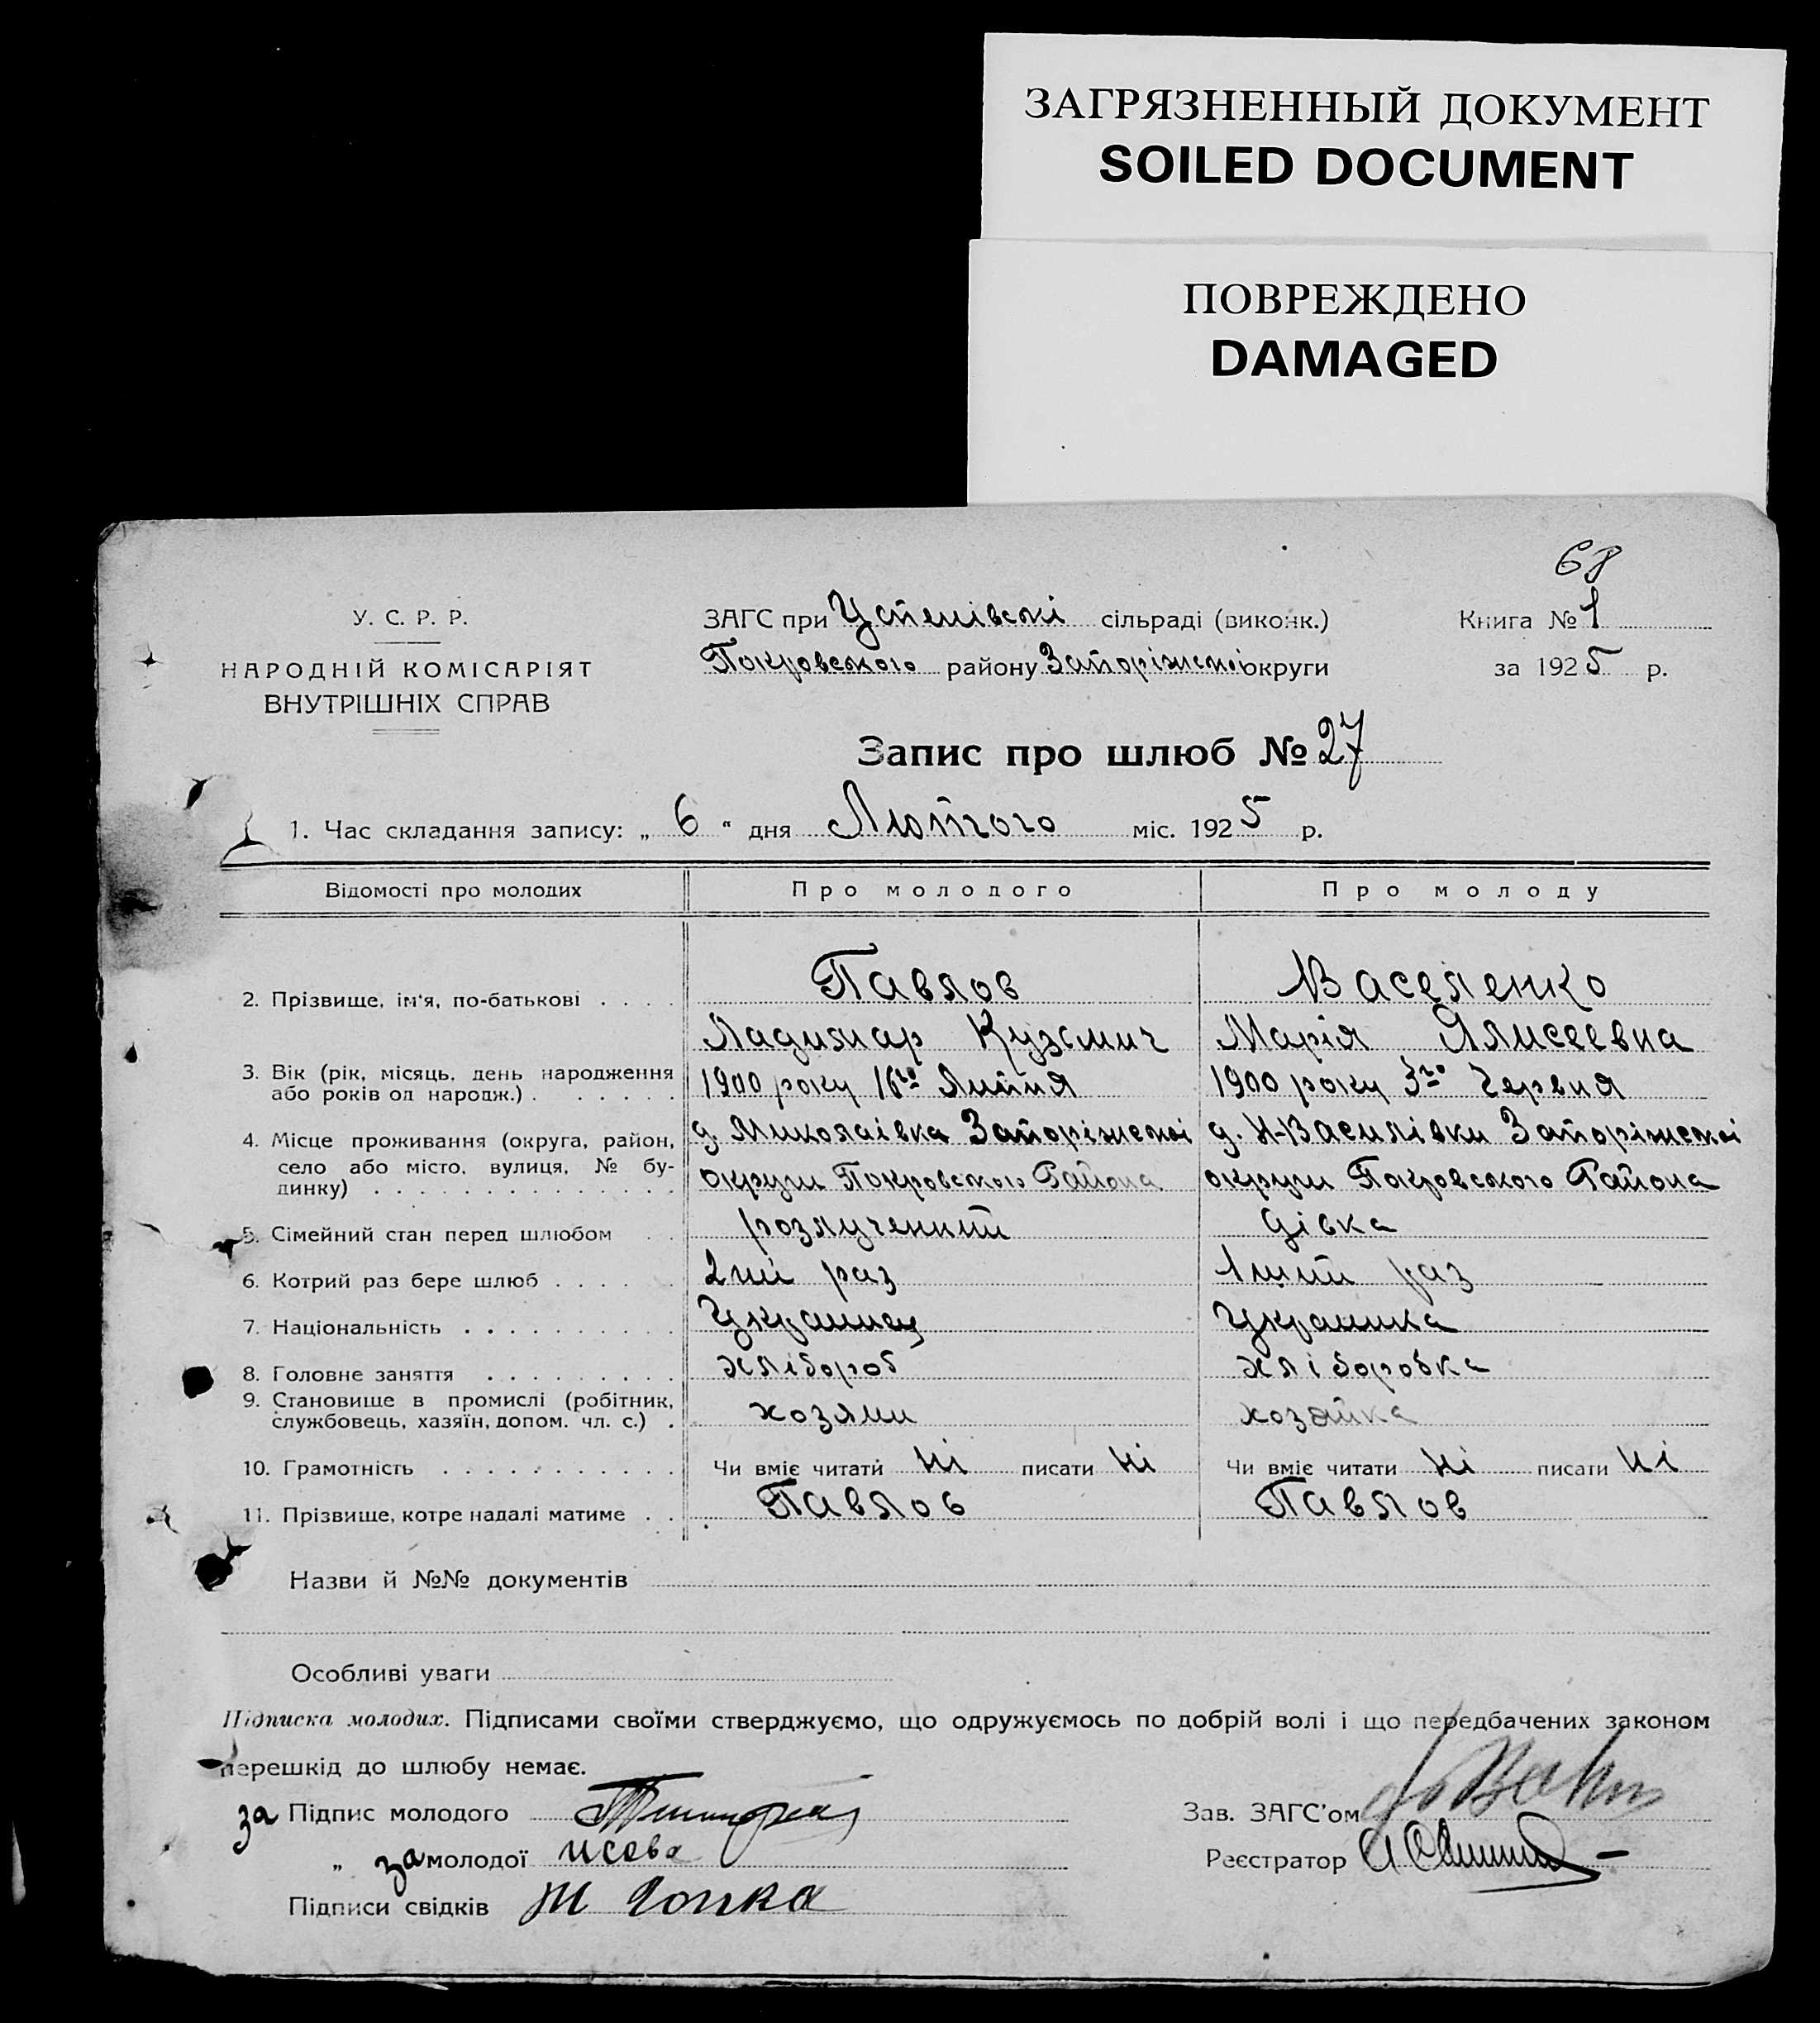 ЗАГРЯЗНЕННЫЙ ДОКУМЕНТ
SOILED DOCUMENT
ПОВРЕЖДЕНО
DAMAGED
68
У. С. Р. Р.
НАРОДНІЙ КОМІСАРІЯТ
ВНУТРІШНІХ СПРАВ
ЗАГС при Успенівскі сільраді (виконк.)
Покровського району Запоріжської округи
Книга № 1
за 1925 р.
Запис про шлюб № 27
1. Час складання запису: „ 6 “ дня Лютого міс. 1925 р.
Відомості про молодих Про молодого Про молоду
2. Прізвище, ім'я, по-батькові . . . . Павлов Васеленко
Кузьмич Марія Ялисеевна
3. Вік (рік, місяць, день народження або років од народж.) . . . . . . 1900 року 16го Липня 1900 року 3го Червня
4. Місце проживання (округа, район, село або місто, вулиця, № будинку) . . . . . . . . . . . . . .
д. Миколаівка Запоріжскоі д. Н-Василівки Запоріжскоі
округи Покровського Района округи Покровського Района
5. Сімейний стан перед шлюбом . . розлученний дівка
6. Котрий раз бере шлюб . . . . . 2ий раз 1ший раз
7. Національність . . . . . . . . . . Украинец Украинка
8. Головне заняття . . . . . . . . . хлібороб хлі боробка
9. Становище в промислі (робітник, службовець, хазяїн, допом. чл. с.) . хозяин хозяйка
10. Грамотність . . . . . . . . . . . Чи вміє читати Ні писати Ні Чи вміє читати Ні писати Ні
11. Прізвище, котре надалі матиме . . Павлов Павлов
Назви й №№ документів
Особливі уваги
Підписка молодих. Підписами своїми стверджуємо, що одружуємось по добрій волі і що передбачених законом
перешкід до шлюбу немає.
за Підпис молодого
Зав. ЗАГС'ом
„ за молодої
Реєстратор
Підписи свідків